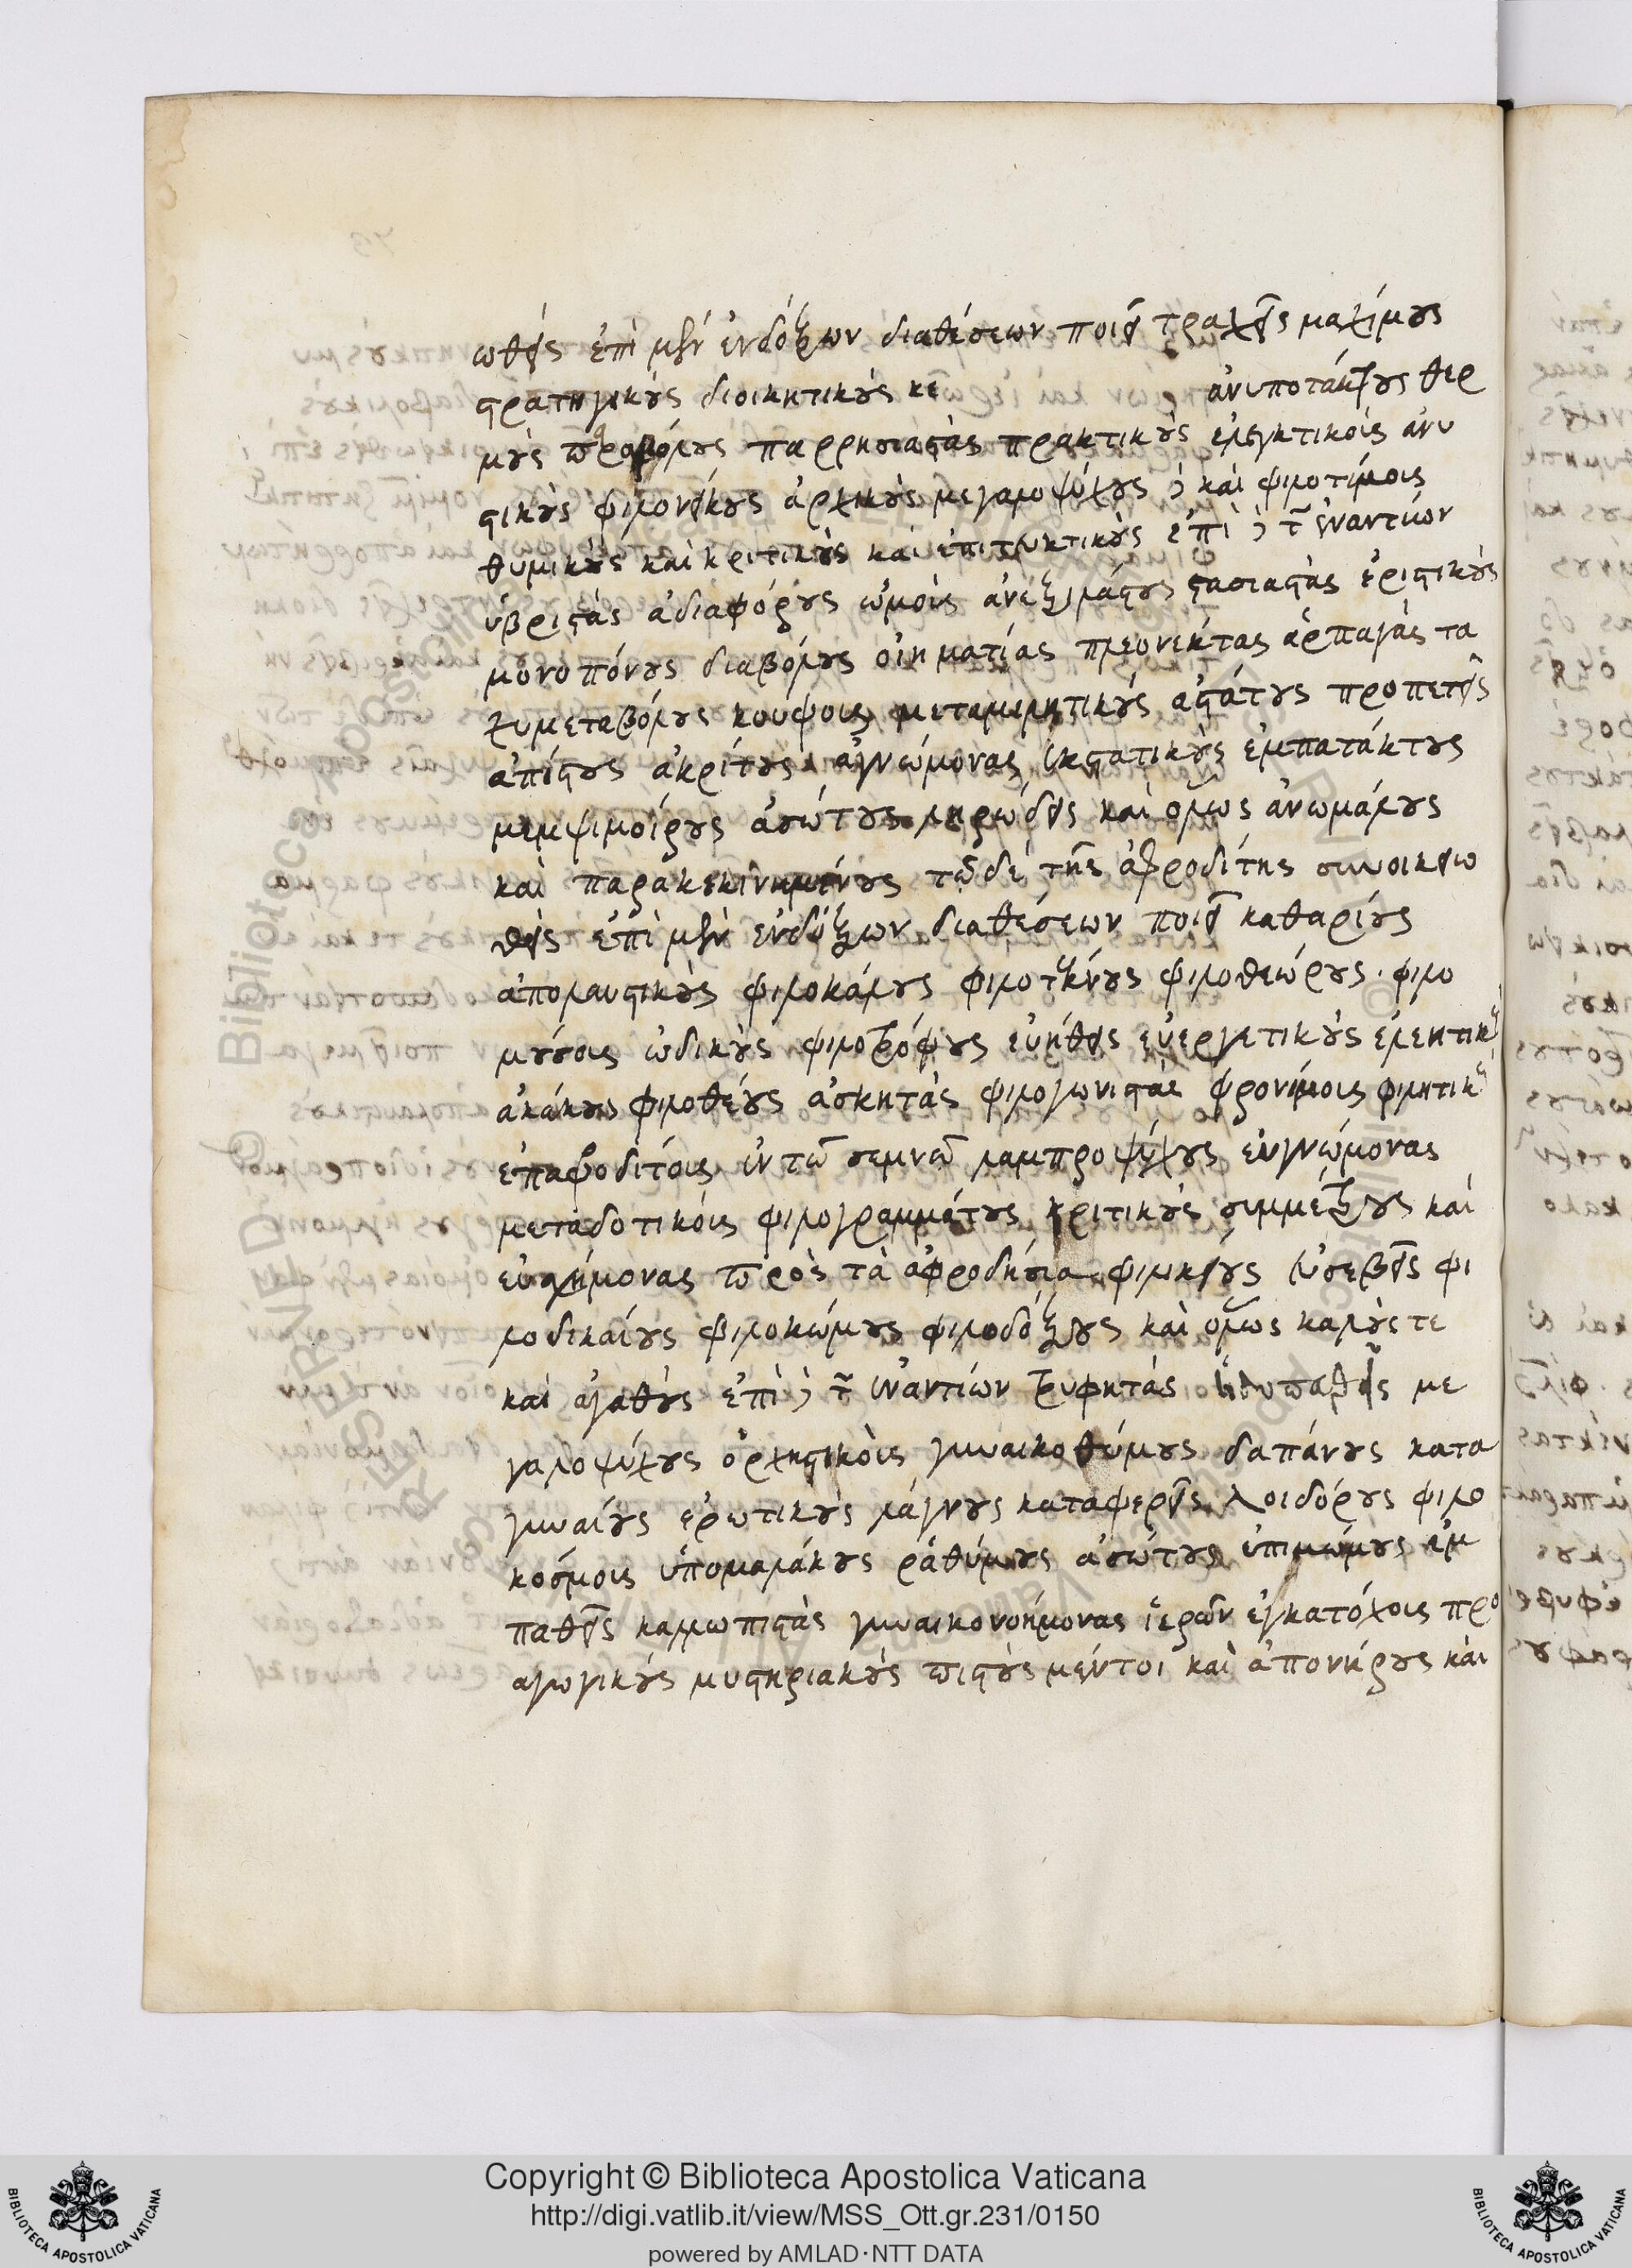 ωθεὶς ἐπὶ μὲν ἐνδόξων διαθέσεων ποιεῖ τραχεῖς μαχίμους
στρατηγικοὺς διοικητικοὺς κε ἀνυποτάκτους θερ
μοὺς παραβόλους παρρησιαστὰς πρακτικοὺς ἐλεγκτικοὶς ἀνυ
στικοὺς φιλονείκους ἀρχικοὺς μεγαλοψύχους δὲ καὶ φιλοτίμοις
θυμικοὺς καὶ κριτικοὺς καὶ ἐπιτευκτικοὺς ἐπὶ δὲ τῶν ἐναντίων
ὑβριστὰς ἀδιαφόρους ὠμοὶς ἀνεξιλάστους στασιαστὰς ἐριστικοὺς
μονοτόνους διαβόλους οἰηματίας πλεονέκτας ἅρπαγὰς τα
χυμεταβόλους κουφοις μεταμελητικοὺς ἀστάτους προπετεῖς
ἀπίστους ἀκρίτους ἀγνώμονας ἐκστατικοὺς ἐμπατάκτους
μεμψιμοίρους ἀσώτους ληρώδεις καὶ ὅλως ἀνωμάλους
καὶ παρακεκινημένους τῷ δὲ τῆς ἀφροδίτης συνοικειω
θεὶς ἐπὶ μὲν ἐνδόξων διαθέσεων ποιεῖ καθαρίους
ἀπολαυστικοὺς φιλοκάλους φιλοτέκνους φιλοθεώρους. φιλο
μούσοις ὠδικοὺς φιλοτρόφους εὐήθεις εὐεργετικοὺς ἐλεητικοὺς
ἀκάκους φιλοθέους ἀσκητὰς φιλογωνιστὰς φρονίμοις φιλητικοὺς
ἐπαφροδίτοις ἐν τῶ σεμνῶ λαμπροψύχους εὐγνώμονας
μεταδοτικοὶς φιλογραμμάτους κριτικοὺς συμμέτρους καὶ
εὐσχήμονας πρὸς τὰ ἀφροδήσια φιλικοὺς εὐσεβεῖς φι
λοδικαίους φιλοκώμους φιλοδόξους καὶ ὅλως καλούς τε
καὶ ἀγαθοὺς ἐπὶ δὲ τῶν ἐναντίων τρυφητὰς ἡδυπαθεῖς με
γαλοψύχους ὀρχηστικοὶς γυναικοθύμους δαπάνους κατα
γυναίους ἐρωτικοὺς λάγνους καταφερεῖς λοιδόρους φιλο
κόσμοις ὑπομαλάκους ῥᾳθύμους ἀσώτους ἐπιμώμους ἐμ
παθεῖς καλλωπιστὰς γυναικονοήμονας ἱερῶν ἐγκατόχοις προ
αγωγικοὺς μυστηριακοὺς πιστοὺς μέντοι καὶ ἀπονήρους καὶ
Copyright © Biblioteca Apostolica Vaticana
http://digi.vatlib.it/view/MSS_Ott.gr.231/0150
powered by AMLAD·NTT DATA